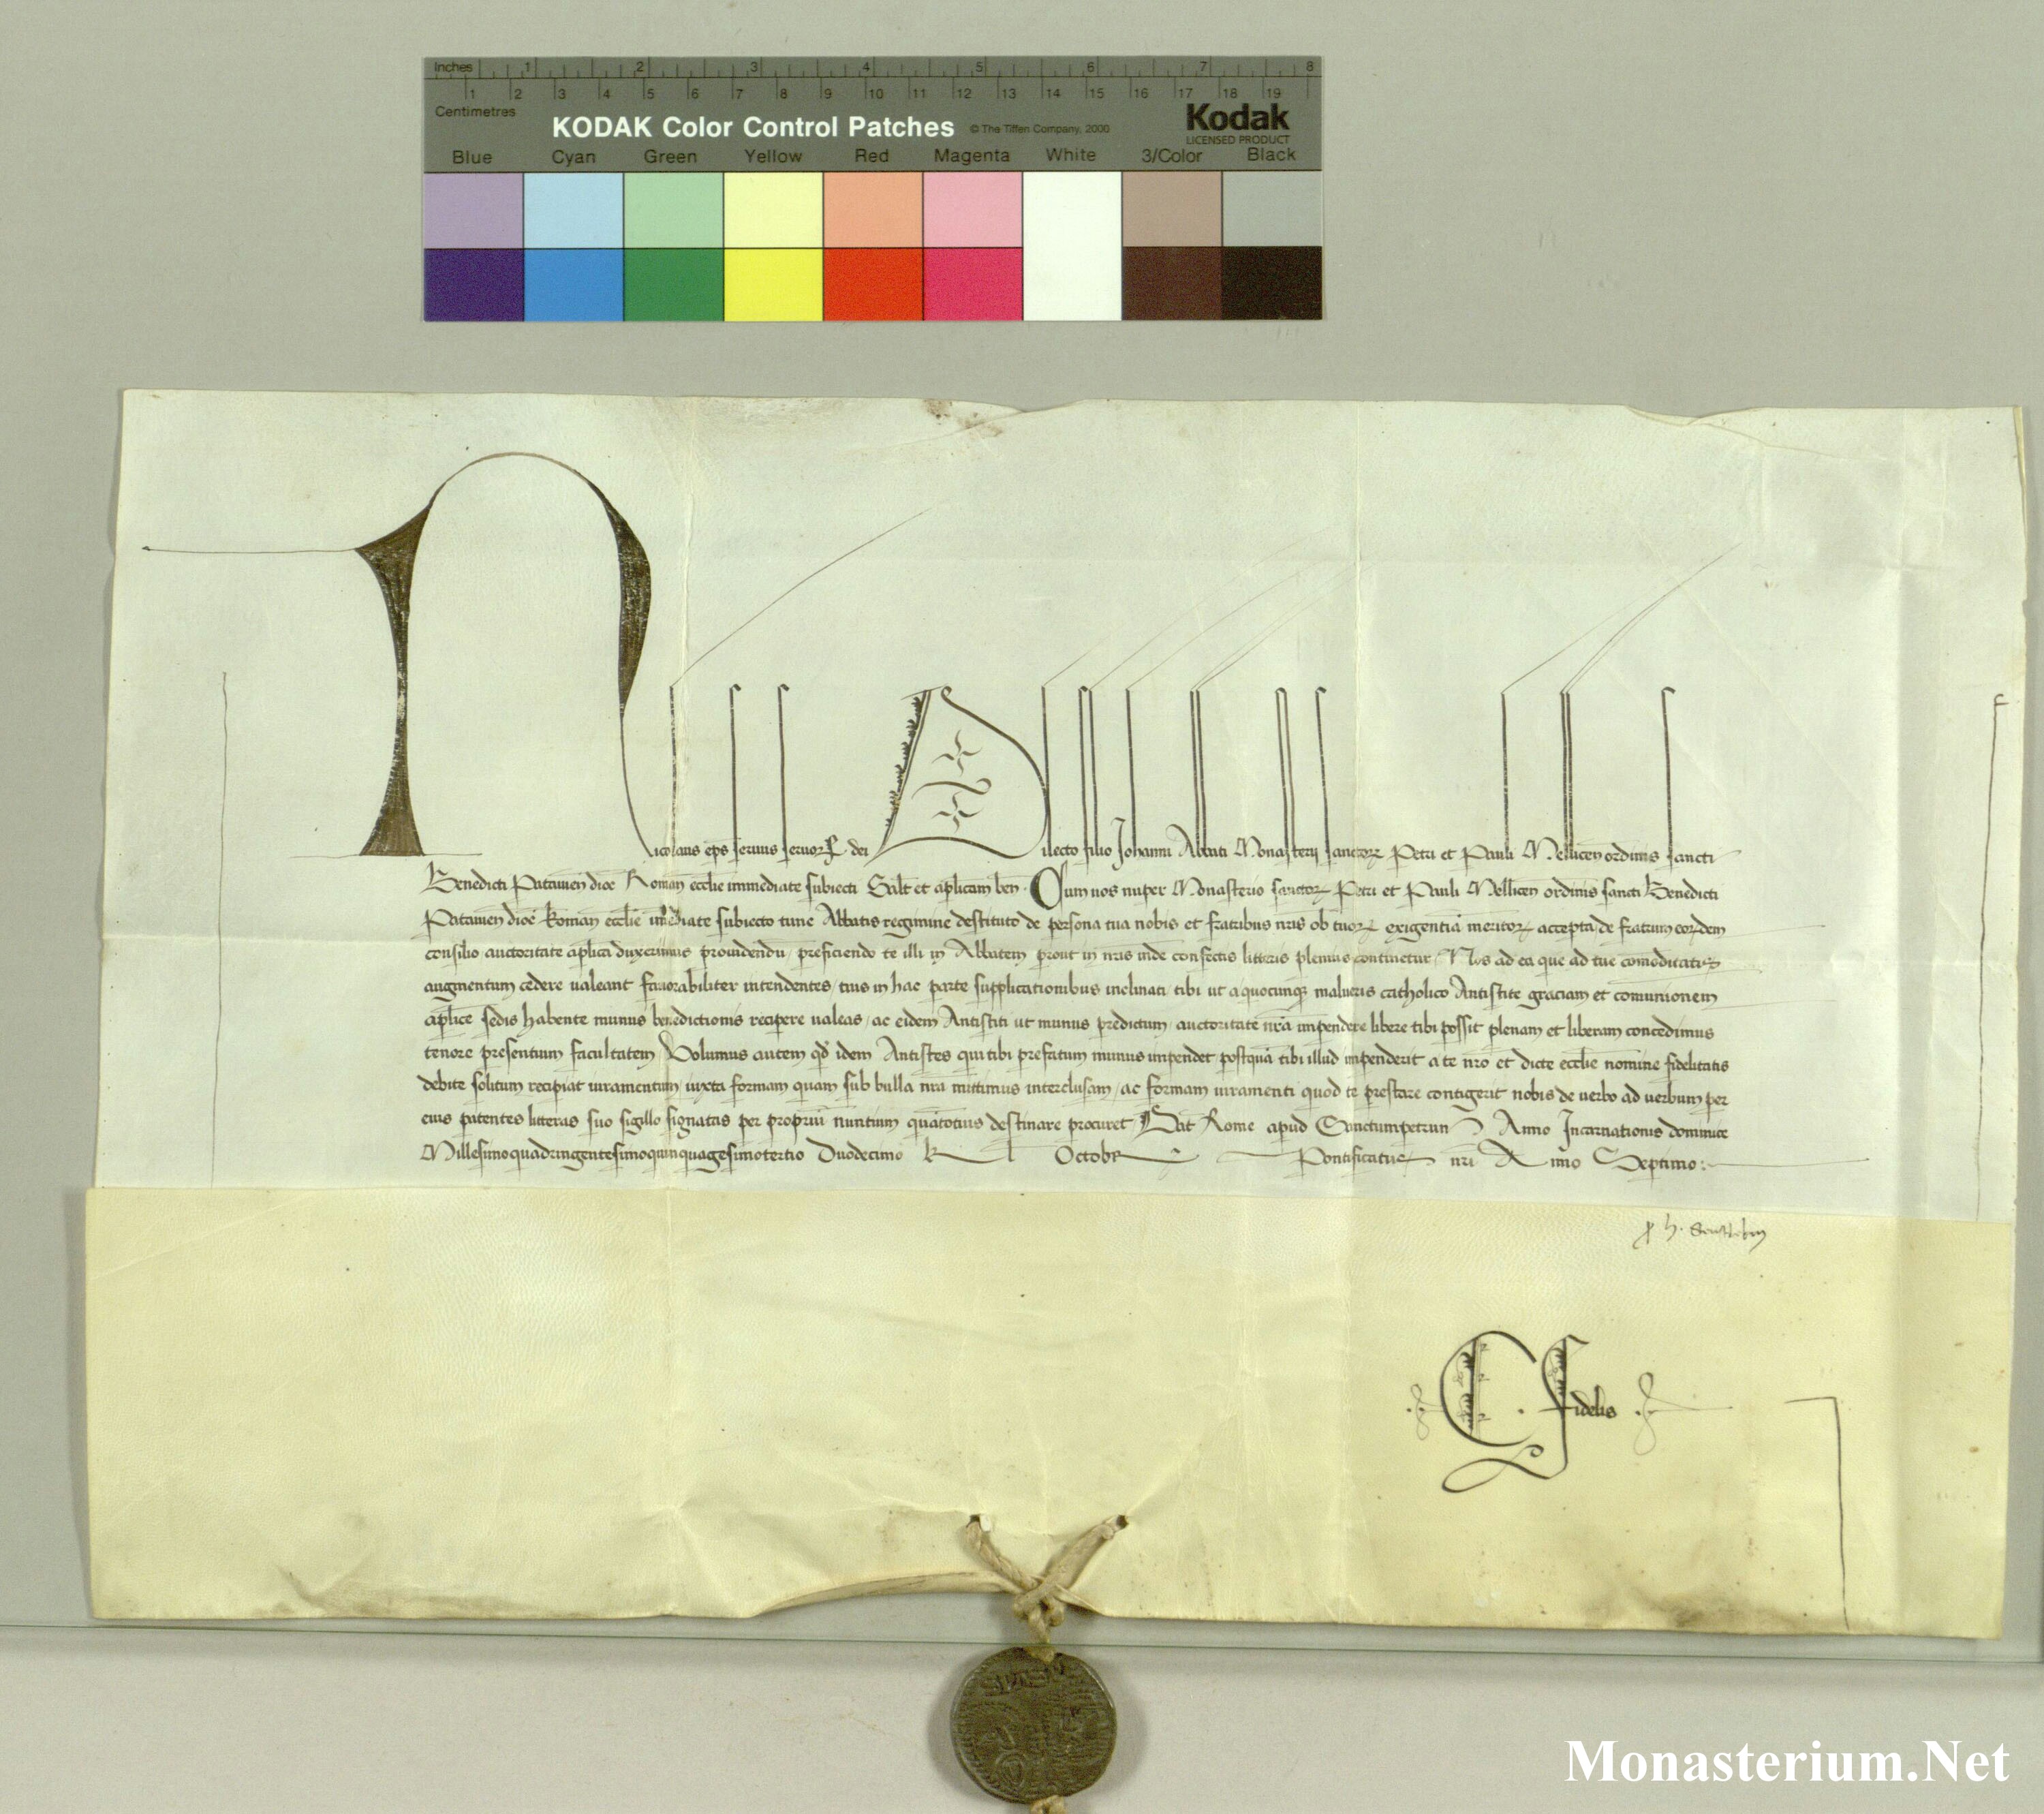 Inches 1 2 3 4 5 6 7 8
1 2 3 4 5 6 7 8 9 10 11 12 13 14 15 16 17 18 19
Centimetres
KODAK Color Control Patches © The Tiffen Company, 2000 Kodak
LICENSED PRODUCT
Blue Cyan Green Yellow Red Magenta White 3/Color Black
Nicolaus ep̄s seruus seruoꝝ dei Dilecto filio Johanni Abbati Monasterij sanctoꝝ Petri et Pauli Mellicen̄ ordinis sancti
Benedicti Patauien̄ dioc̄ Roman̄ eccl̄ie immediate subiecti Salt̄ et ap̄licam ben̄. Cum nos nuper Monasterio sanctoꝝ Petri et Pauli Mellicen̄ ordinis sancti Benedicti
Patauien̄ dioc̄ Roman̄ eccl̄ie immediate subiecto tunc Abbatis regimine destituto de persona tua nobis et fratribus nr̄is ob tuoꝝ exigentiā meritoꝝ accepta, de fratrum eoꝝdem
consilio auctoritate ap̄lica duxerimus prouidendū, preficiendo te illi in Abbatem prout in nr̄is inde confectis litteris plenius continetur, Nos ad ea que ad tue com̄oditatis
augmentum cedere ualeant fauorabiliter intendentes, tuis in hac parte supplicationibus inclinati tibi ut a quocunqꝫ malueris catholico Antistite graciam et com̄unionem
ap̄lice sedis habente munus benedictionis recipere ualeas, ac eidem Antistiti ut munus predictum, auctoritate nr̄a impendere libere tibi possit plenam et liberam concedimus
tenore presentium facultatem, Volumus autem qd̄ idem Antistes qui tibi prefatum munus impendet postquā tibi illud impenderit a te nr̄o et dicte eccl̄ie nomine fidelitatis
debite solitum recipiat iuramentum, iuxta formam quam sub bulla nr̄a mittimus interclusam, ac formam iuramenti quod te prestare contigerit nobis de uerbo ad uerbum per
eius patentes litteras suo sigillo signatas per propriū nuntium quātotius destinare procuret, Dat̄ Rome apud Sanctumpetrum Anno Incarnationis dominice
Millesimoquadringentesimoquinquagesimotertio Duodecimo kl Octobr̄ Pontificatus nr̄i Anno Septimo:
h.
C. Fidelis
Monasterium.Net